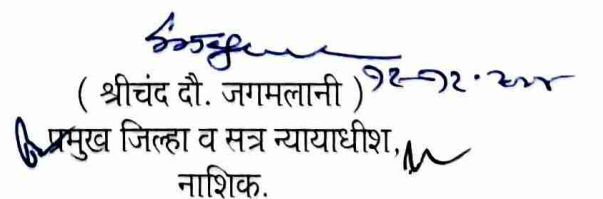 ( श्रीचंद दौ. जगमलानी )
प्रमुख जिल्हा व सत्र न्यायाधीश,
नाशिक.